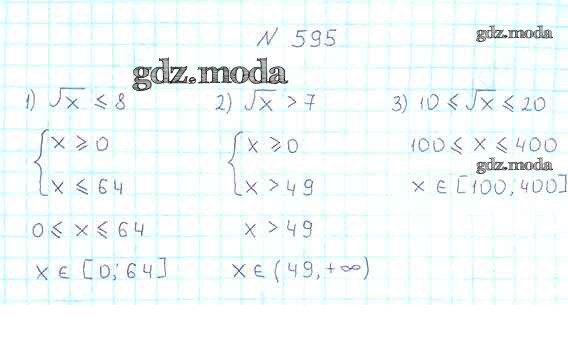 N 595
gdz.moda
gdz.moda
1) √x ⩽ 8
x ⩾ 0
x ⩽ 64
0 ⩽ x ⩽ 64
x ∈ [0; 64]
2) √x > 7
x ⩾ 0
x > 49
x > 49
x ∈ (49, +∞)
3) 10 ⩽ √x ⩽ 20
100 ⩽ x ⩽ 400
gdz.moda
x ∈ [100; 400]